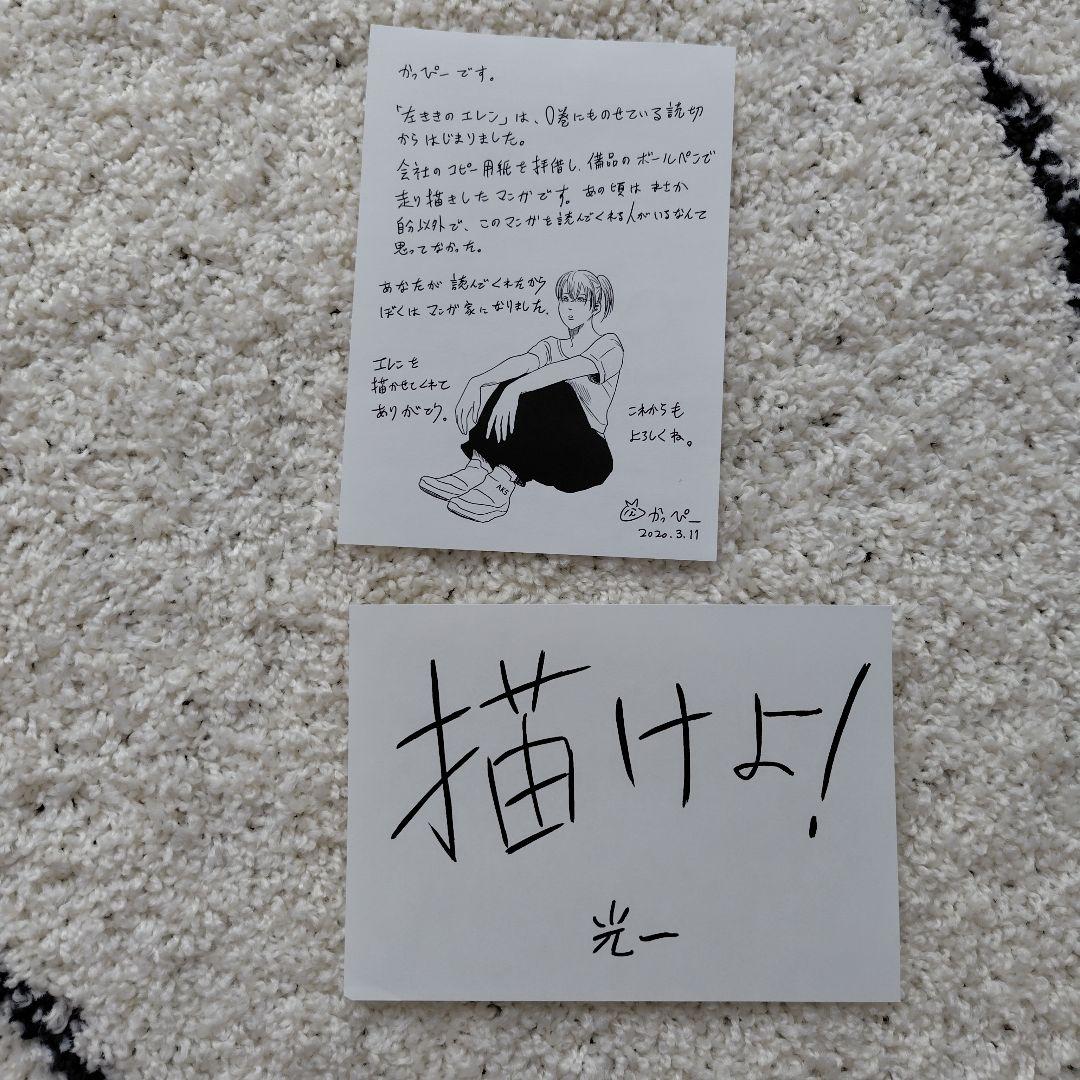 かっぴーです。
「左ききのエレン」は、0巻にものせている読切
からはじまりました。
会社のコピー用紙を拝借し、備品のボールペンで
走り描きしたマンガです。あの頃はまさか
自分以外で、このマンガを読んでくれる人がいるなんて
思ってなかった。
あなたが読んでくれたから
ぼくはマンガ家になりました。
エレンを
描かせてくれて
ありがとう。
これからも
よろしくね。
AKS
かっぴー
2020.3.11
描けよ!
光一